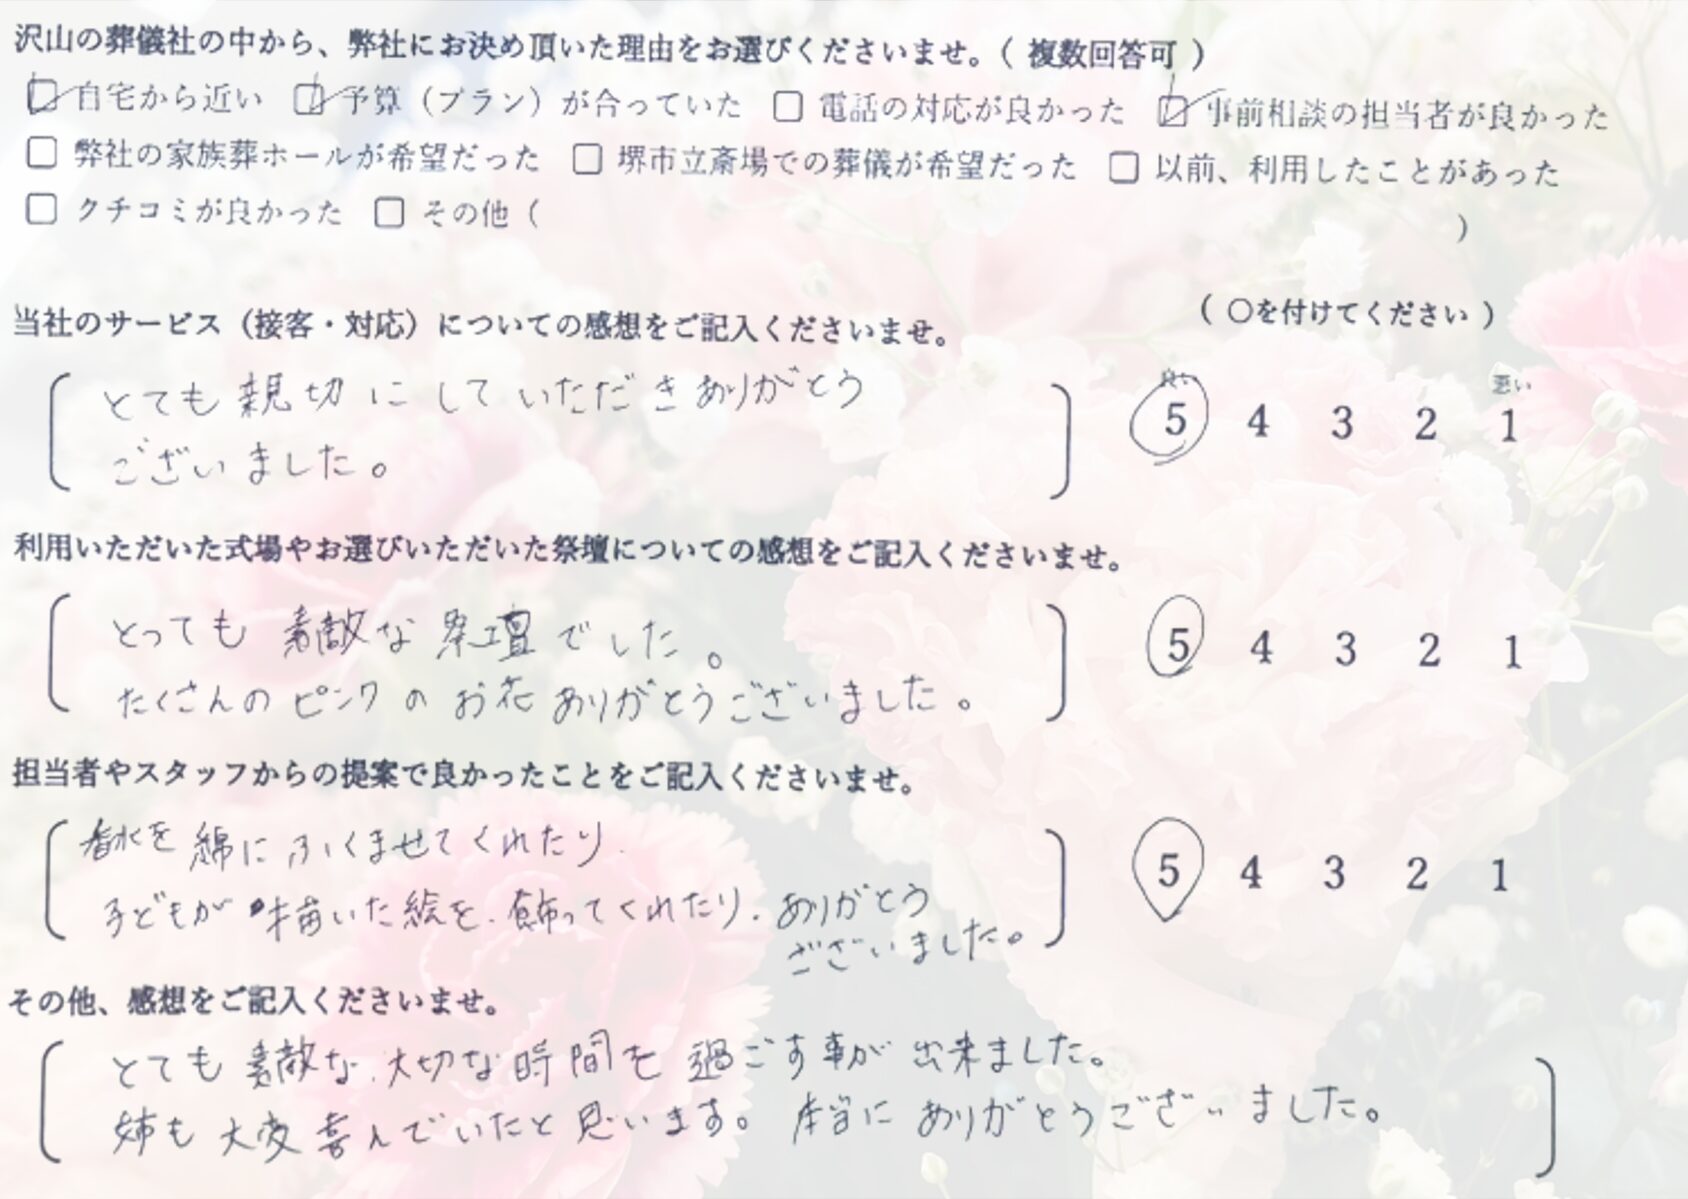 沢山の葬儀社の中から、弊社にお決め頂いた理由をお選びくださいませ。（ 複数回答可 ）
☑ 自宅から近い ☑ 予算（プラン）が合っていた □ 電話の対応が良かった ☑ 事前相談の担当者が良かった
□ 弊社の家族葬ホールが希望だった □ 堺市立斎場での葬儀が希望だった □ 以前、利用したことがあった
□ クチコミが良かった □ その他（ ）
当社のサービス（接客・対応）についての感想をご記入くださいませ。
（ ○を付けてください ）
とても親切にしていただきありがとう
ございました。
良い 悪い
5 4 3 2 1
利用いただいた式場やお選びいただいた祭壇についての感想をご記入くださいませ。
とっても素敵な祭壇でした。
たくさんのピンクのお花ありがとうございました。
5 4 3 2 1
担当者やスタッフからの提案で良かったことをご記入くださいませ。
香水を綿にふくませてくれたり.
子どもが描いた絵を、飾ってくれたり. ありがとう
ございました。
5 4 3 2 1
その他、感想をご記入くださいませ。
とても素敵な、大切な時間を過ごす事が出来ました。
姉も大変喜んでいたと思います。本当にありがとうございました。